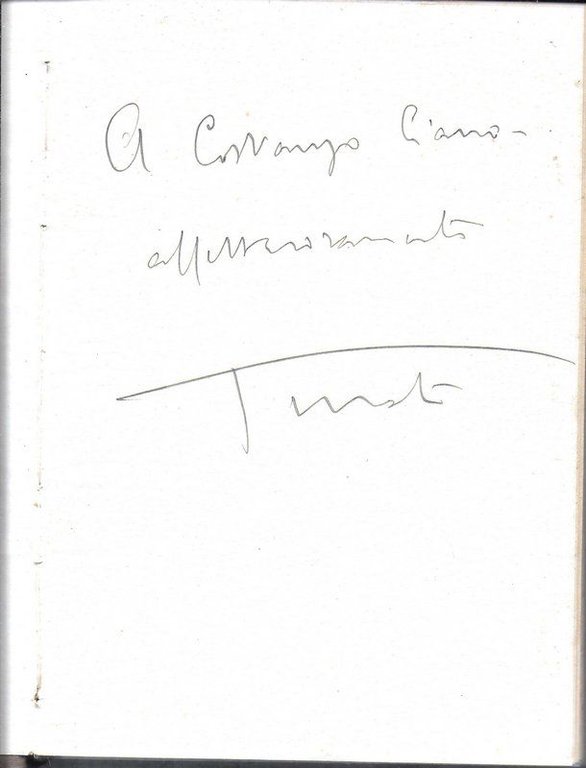 A Costanzo Ciano -
affettuosamente